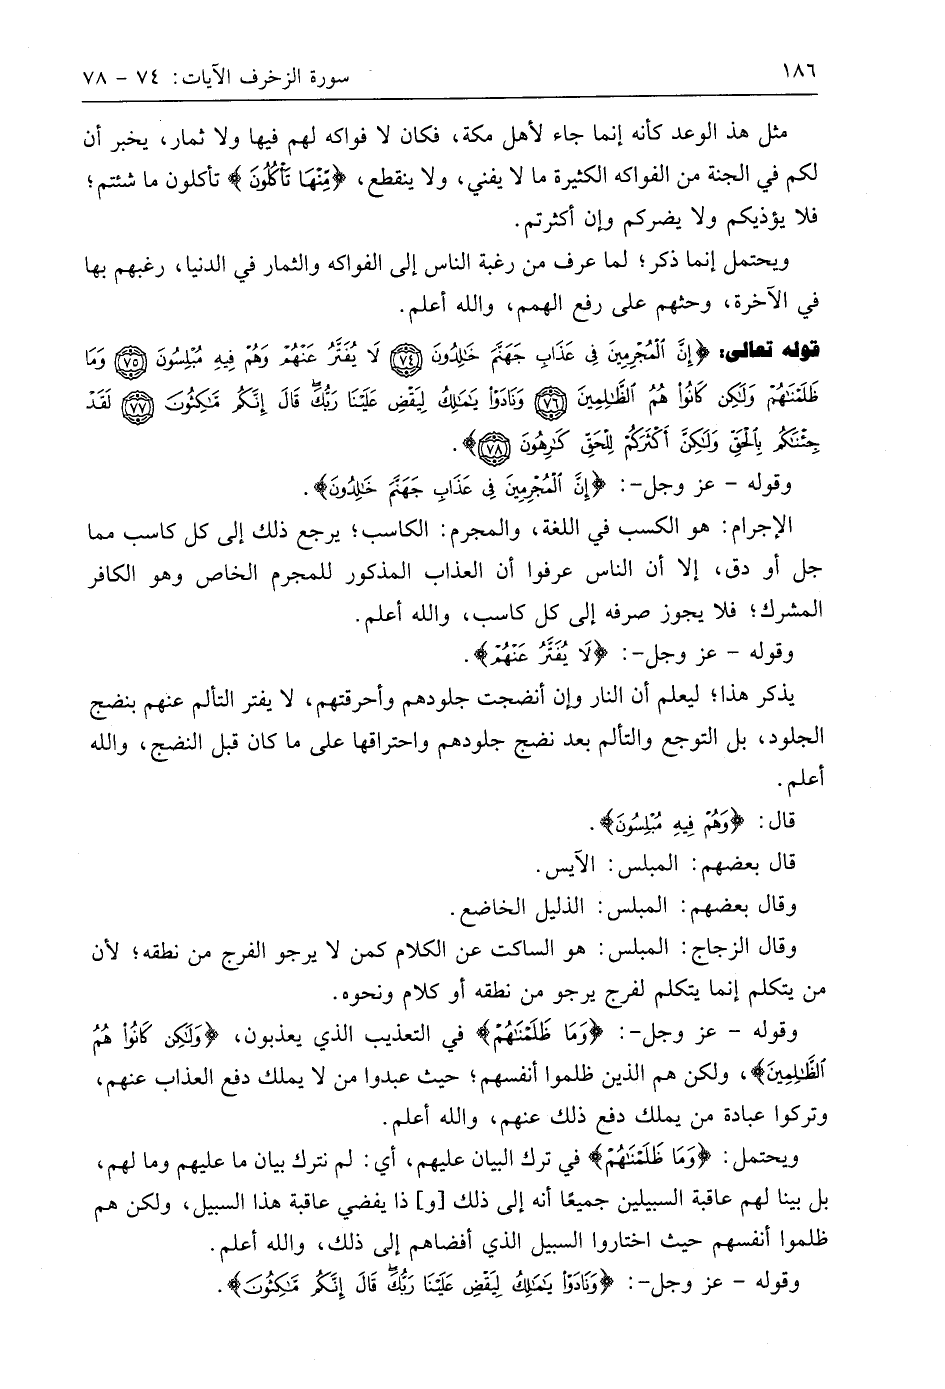 ١٨٦
سورة الزخرف الآيات: ٧٤ - ٧٨
مثل هذ الوعد كأنه إنما جاء لأهل مكة، فكان لا فواكه لهم فيها ولا ثمار، يخبر أن
لكم في الجنة من الفواكه الكثيرة ما لا يفني، ولا ينقطع، ﴿مِّنْهَا تَأْكُلُونَ﴾ تأكلون ما شئتم؛
فلا يؤذيكم ولا يضركم وإن أكثرتم.
ويحتمل إنما ذكر؛ لما عرف من رغبة الناس إلى الفواكه والثمار في الدنيا، رغبهم بها
في الآخرة، وحثهم على رفع الهمم، والله أعلم.
قوله تعالى: ﴿إِنَّ ٱلْمُجْرِمِينَ فِى عَذَابِ جَهَنَّمَ خَٰلِدُونَ ٧٤ لَا يُفَتَّرُ عَنْهُمْ وَهُمْ فِيهِ مُبْلِسُونَ ٧٥ وَمَا
ظَلَمْنَٰهُمْ وَلَٰكِن كَانُوا۟ هُمُ ٱلظَّٰلِمِينَ ٧٦ وَنَادَوْا۟ يَٰمَٰلِكُ لِيَقْضِ عَلَيْنَا رَبُّكَ ۖ قَالَ إِنَّكُم مَّٰكِثُونَ ٧٧ لَقَدْ
جِئْنَٰكُم بِٱلْحَقِّ وَلَٰكِنَّ أَكْثَرَكُمْ لِلْحَقِّ كَٰرِهُونَ ٧٨﴾.
وقوله - عز وجل-: ﴿إِنَّ ٱلْمُجْرِمِينَ فِى عَذَابِ جَهَنَّمَ خَٰلِدُونَ﴾.
الإجرام: هو الكسب في اللغة، والمجرم: الكاسب؛ يرجع ذلك إلى كل كاسب مما
جل أو دق، إلا أن الناس عرفوا أن العذاب المذكور للمجرم الخاص وهو الكافر
المشرك؛ فلا يجوز صرفه إلى كل كاسب، والله أعلم.
وقوله - عز وجل-: ﴿لَا يُفَتَّرُ عَنْهُمْ﴾.
يذكر هذا؛ ليعلم أن النار وإن أنضجت جلودهم وأحرقتهم، لا يفتر التألم عنهم بنضج
الجلود، بل التوجع والتألم بعد نضج جلودهم واحتراقها على ما كان قبل النضج، والله
أعلم.
قال: ﴿وَهُمْ فِيهِ مُبْلِسُونَ﴾.
قال بعضهم: المبلس: الآيس.
وقال بعضهم: المبلس: الذليل الخاضع.
وقال الزجاج: المبلس: هو الساكت عن الكلام كمن لا يرجو الفرج من نطقه؛ لأن
من يتكلم إنما يتكلم لفرج يرجو من نطقه أو كلام ونحوه.
وقوله - عز وجل-: ﴿وَمَا ظَلَمْنَٰهُمْ﴾ في التعذيب الذي يعذبون، ﴿وَلَٰكِن كَانُوا۟ هُمُ
ٱلظَّٰلِمِينَ﴾، ولكن هم الذين ظلموا أنفسهم؛ حيث عبدوا من لا يملك دفع العذاب عنهم،
وتركوا عبادة من يملك دفع ذلك عنهم، والله أعلم.
ويحتمل: ﴿وَمَا ظَلَمْنَٰهُمْ﴾ في ترك البيان عليهم، أي: لم نترك بيان ما عليهم وما لهم،
بل بينا لهم عاقبة السبيلين جميعًا أنه إلى ذلك [و] ذا يفضي عاقبة هذا السبيل، ولكن هم
ظلموا أنفسهم حيث اختاروا السبيل الذي أفضاهم إلى ذلك، والله أعلم.
وقوله - عز وجل-: ﴿وَنَادَوْا۟ يَٰمَٰلِكُ لِيَقْضِ عَلَيْنَا رَبُّكَ ۖ قَالَ إِنَّكُم مَّٰكِثُونَ﴾.